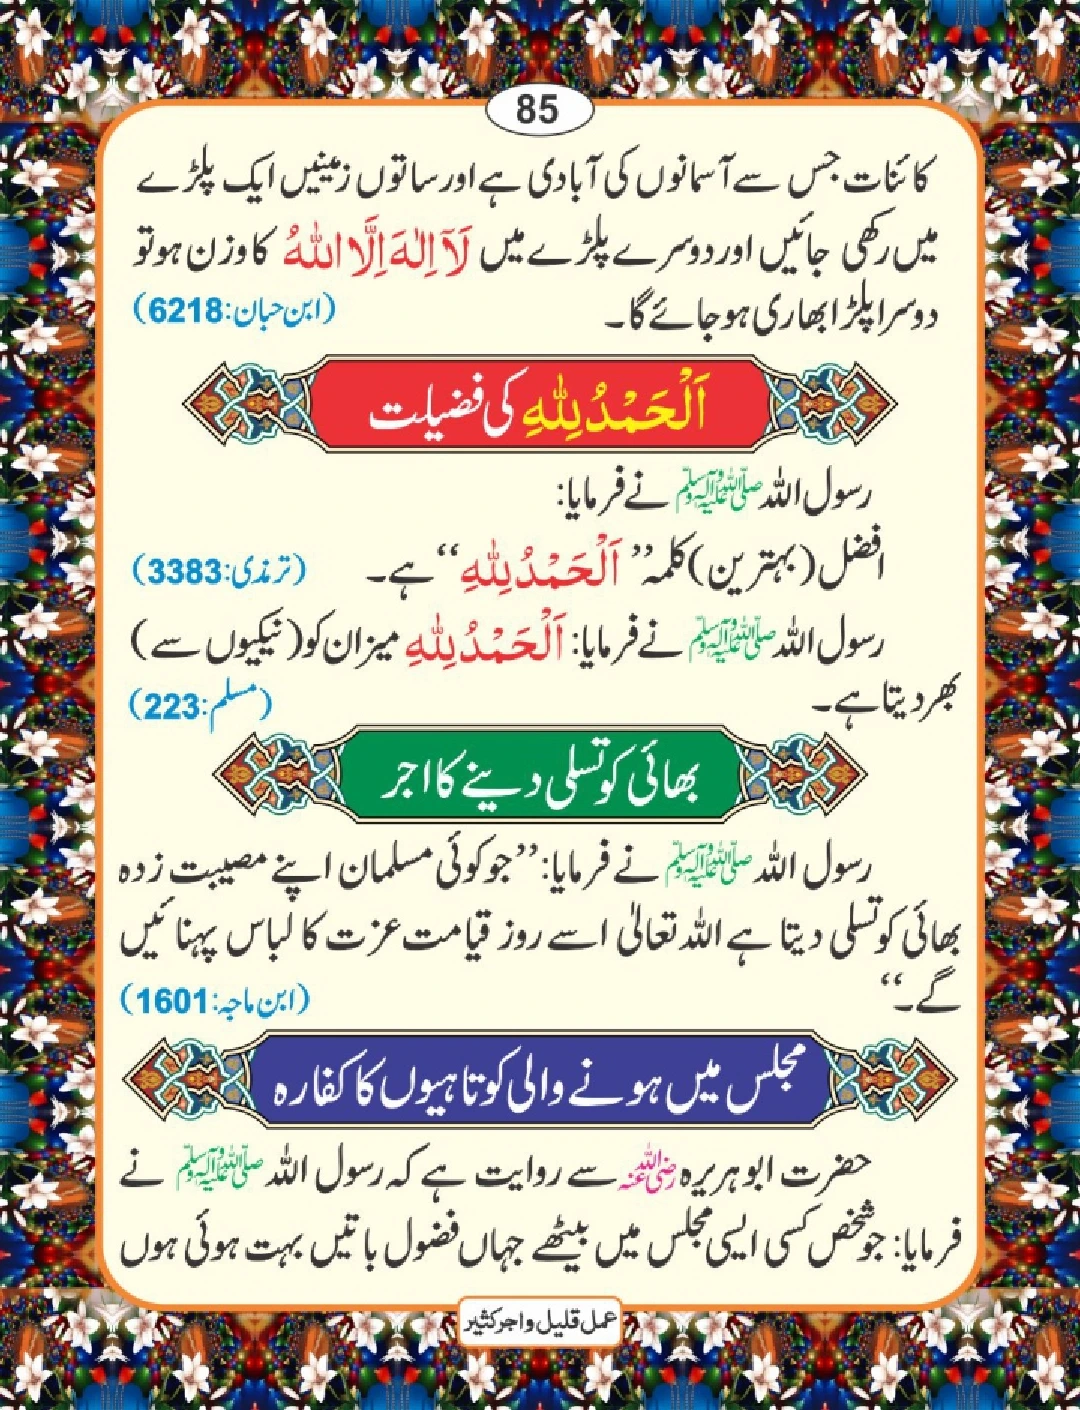 85
کائنات جس سے آسمانوں کی آبادی ہے اور ساتوں زمینیں ایک پلڑے
میں رکھی جائیں اور دوسرے پلڑے میں لَآ اِلٰهَ اِلَّا اللّٰهُ کا وزن ہو تو
دوسرا پلڑا بھاری ہو جائے گا۔ (ابن حبان:6218)
اَلْحَمْدُ لِلّٰهِ کی فضیلت
رسول اللہ صلی اللہ علیہ وآلہ وسلم نے فرمایا:
افضل (بہترین) کلمہ ”اَلْحَمْدُ لِلّٰهِ“ ہے۔ (ترمذی:3383)
رسول اللہ صلی اللہ علیہ وآلہ وسلم نے فرمایا: اَلْحَمْدُ لِلّٰهِ میزان کو (نیکیوں سے)
بھر دیتا ہے۔ (مسلم:223)
بھائی کو تسلی دینے کا اجر
رسول اللہ صلی اللہ علیہ وآلہ وسلم نے فرمایا: ”جو کوئی مسلمان اپنے مصیبت زدہ
بھائی کو تسلی دیتا ہے اللہ تعالٰی اسے روز قیامت عزت کا لباس پہنائیں
گے۔“ (ابن ماجہ:1601)
مجلس میں ہونے والی کوتاہیوں کا کفارہ
حضرت ابوہریرہ رضی اللہ عنہ سے روایت ہے کہ رسول اللہ صلی اللہ علیہ وآلہ وسلم نے
فرمایا: جو شخص کسی ایسی مجلس میں بیٹھے جہاں فضول باتیں بہت ہوئی ہوں
عمل قلیل و اجر کثیر